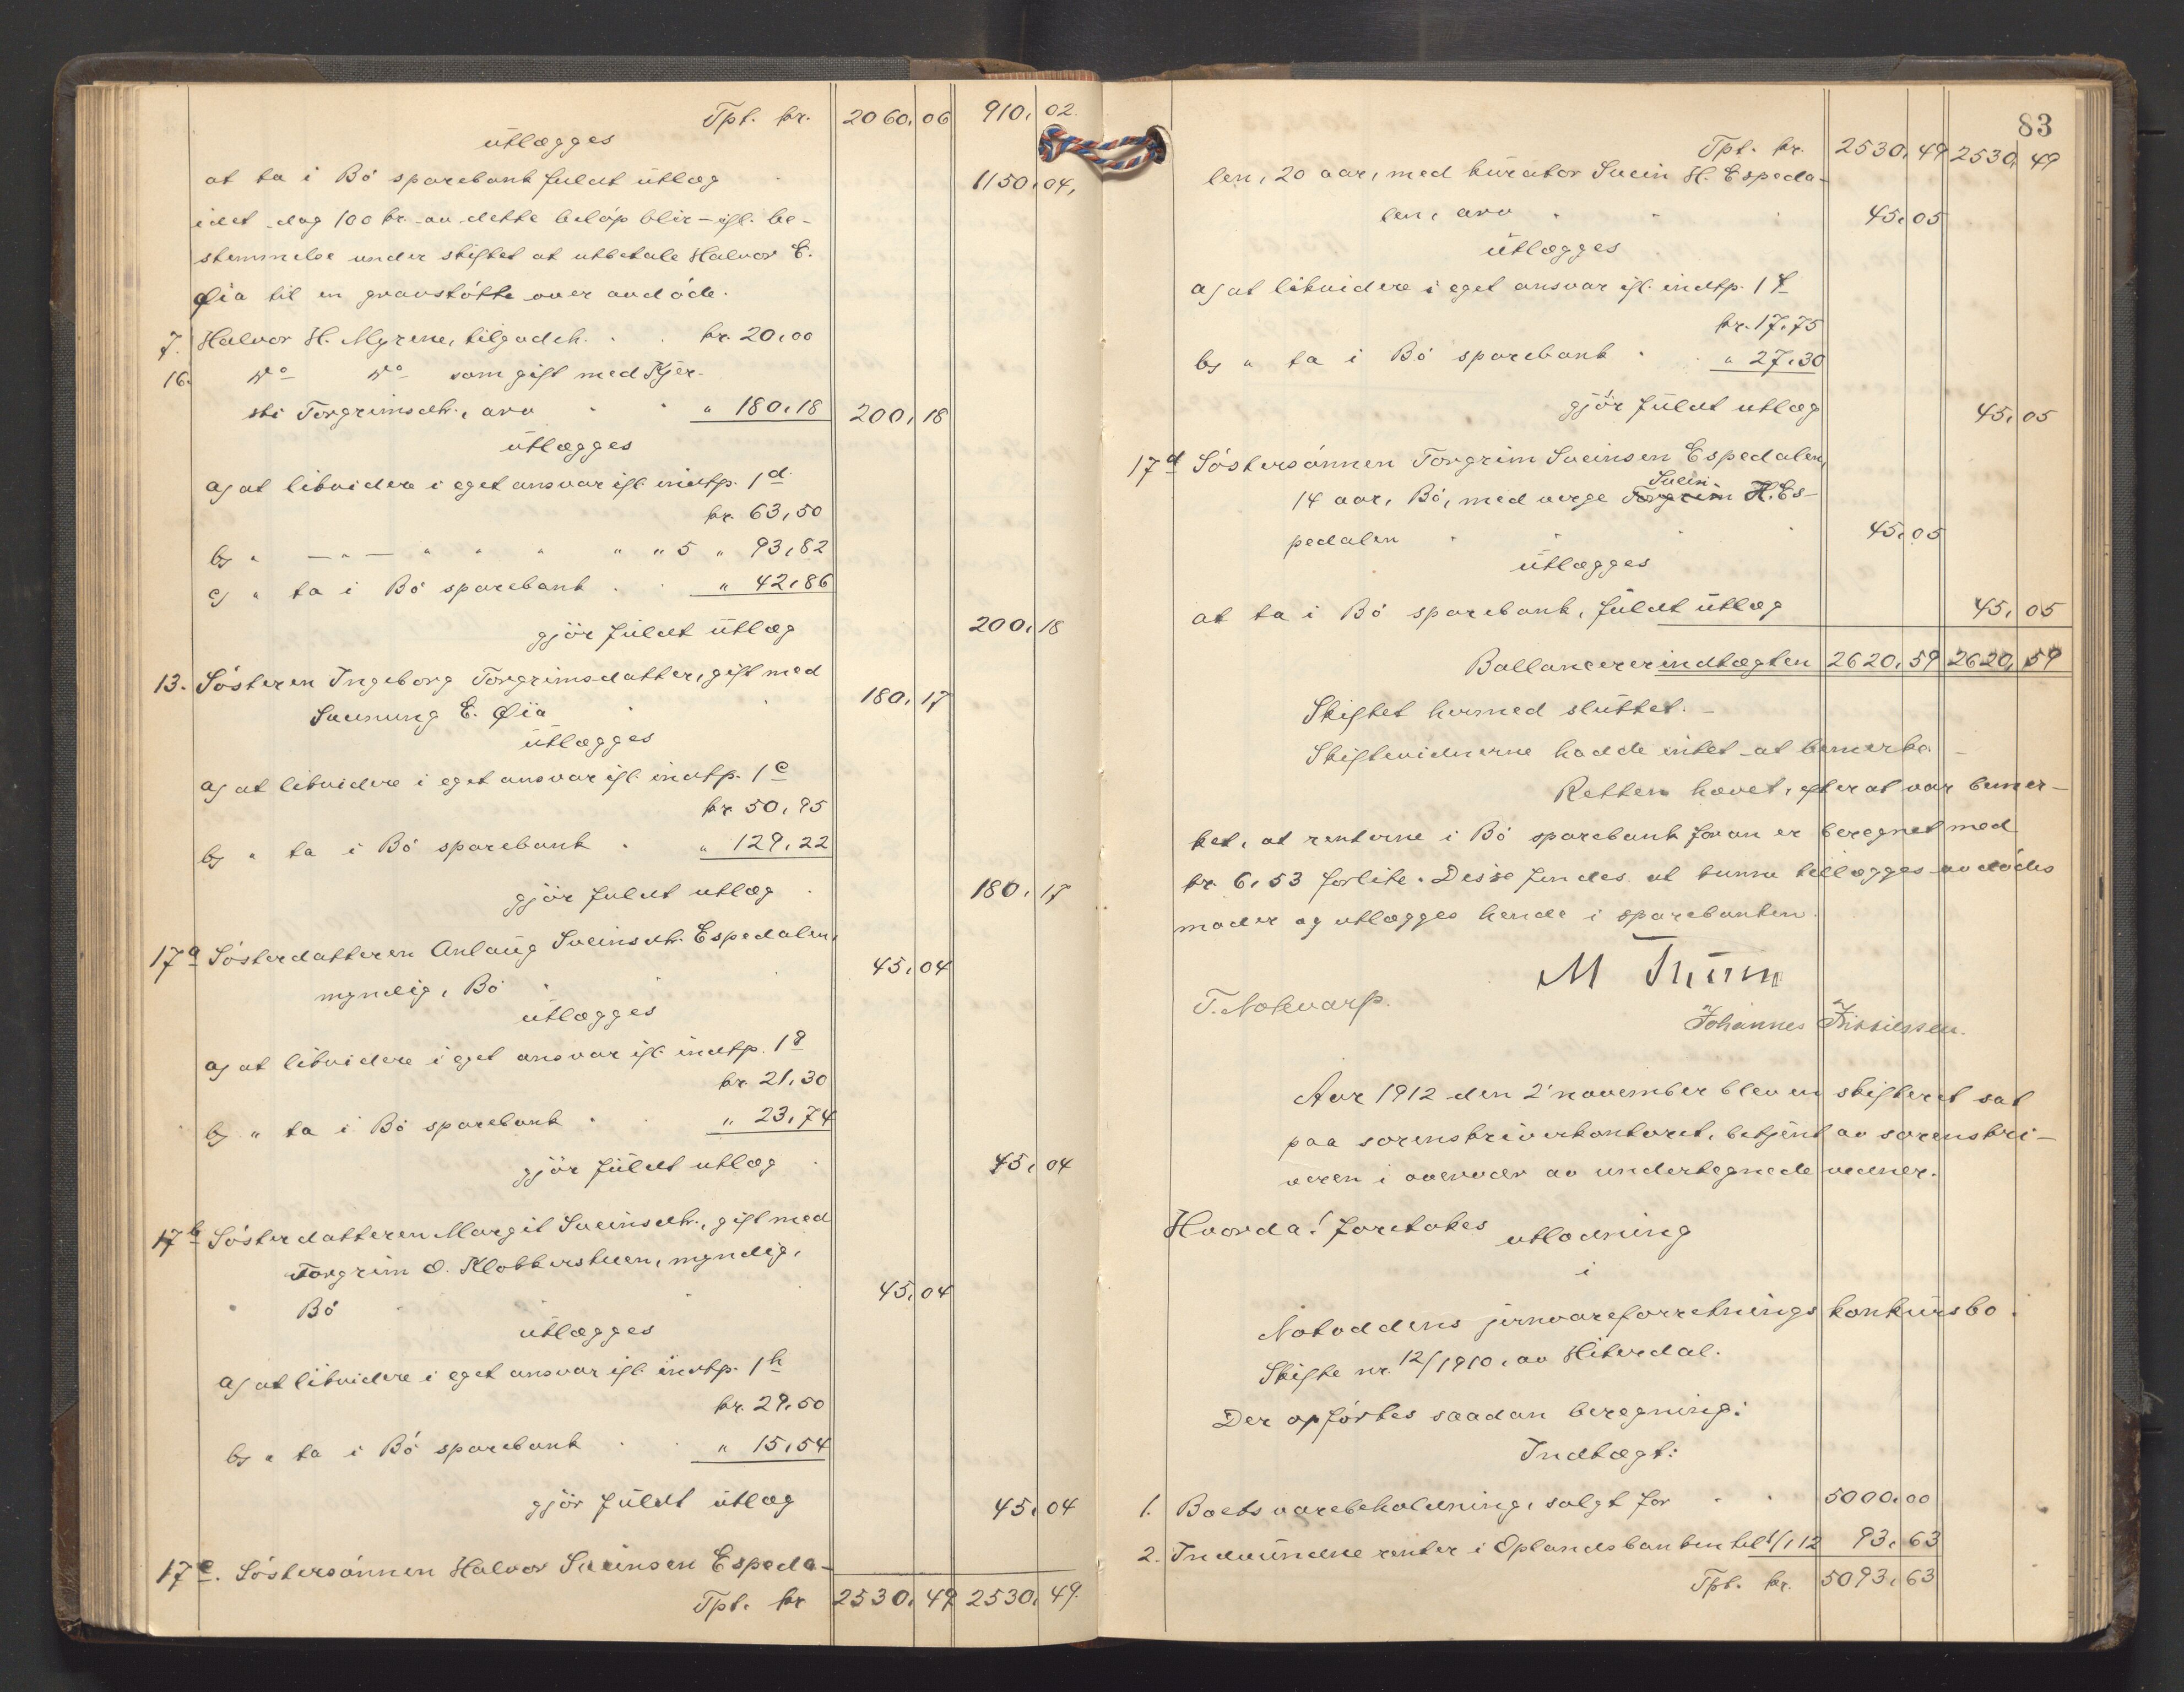 Tpt. kr. 2060,06 910,02.
utlægges
at ta i Bö sparebank fuldt utlæg 1150,04,
idet dog 100 kr. av dette belöp blir - ifl. be-
stemmelse under skiftet at utbetale Halvor E.
Øia til en gravstötte over avdöde.
7. Halvor H. Myrene, tilgodeh. kr. 20,00
16. Do Do som gift med Kjer-
sti Torgrimsdtr., arv " 180,18 200,18
utlægges
a) at likvidere i eget ansvar ifl. indtp. 1d
kr. 63,50
b) " — " — " " " " " 5 " 93,82
c) " ta i Bö sparebank " 42,86
gjör fuldt utlæg 200,18
13. Sösteren Ingeborg Torgrimsdatter, gift med
Sveinung E. Øia 180,17
utlægges
a) at likvidere i eget ansvar ifl. indtp. 1e
kr. 50,95
b) " ta i Bö sparebank " 129,22
gjör fuldt utlæg 180,17
17a Södterdatteren Anlaug Sveinsdtr. Espedalen,
myndig, Bö 45,04
utlægges
a) at likvidere i eget ansvar ifl. indtp. 1g
kr. 21,30
b) " ta i Bö sparebank " 23,74
gjör fuldt utlæg 45,04
17b Sösterdatteren Margit Sveinsdtr., gift med
Torgrim O. Klokkerstuen, myndig,
Bö 45,04
utlægges
a) at likvidere i eget ansvar ifl. indtp. 1h
kr. 29,50
b) " ta i Bö sparebank " 15,54
gjör fuldt utlæg 45,04
17c. Söstersönnen Halvor Sveinsen Espeda-
Tpt. kr 2530,49 2530,49.
83
Tpt. kr. 2530,49 2530,49
len, 20 aar, med kurator Svein H. Espeda-
len, arv 45,05
utlægges
a) at likvidere i eget ansvar ifl. indtp. 1f
kr. 17,75
b) " ta i Bö sparebank " 27,30
gjör fuldt utlæg 45,05
17d Söstersönnen Torgrim Sveinsen Espedalen,
Svein
14 aar, Bö, med verge Torgrim H. Es-
pedalen 45,05
utlægges
at ta i Bö sparebank, fuldt utlæg 45,05
Ballancerer indtægten 2620,59 2620,59
Skiftet hermed sluttet. -
Skiftevidnerne hadde intet at bemerke. -
Retten hævet, efter at var bemer-
ket, at renterne i Bö sparebank foran er beregnet med
kr. 6,53 forlite. Disse findes at kunne tillægges avdödes
moder og utlægges hende i sparebanken.
M Thurm
T. Notevarp.
Johannes
Aar 1912 den 2' november blev en skifteret sat
paa sorenskriverkontoret, betjent av sorenskri-
veren i overvær av undertegnede vidner.
Hvorda! foretokes utlodning
i
Notoddens jernvareforretnings konkursbo.
Skifte nr. 12/1910, av Hiterdal.
Der opförtes saadan beregning:
Indtægt:
1. Boets varebeholdning, solgt for 5000,00
2. Indvundne renter i Oplandsbanken til 1/1 12 93,63
Tpt. kr. 5093,63